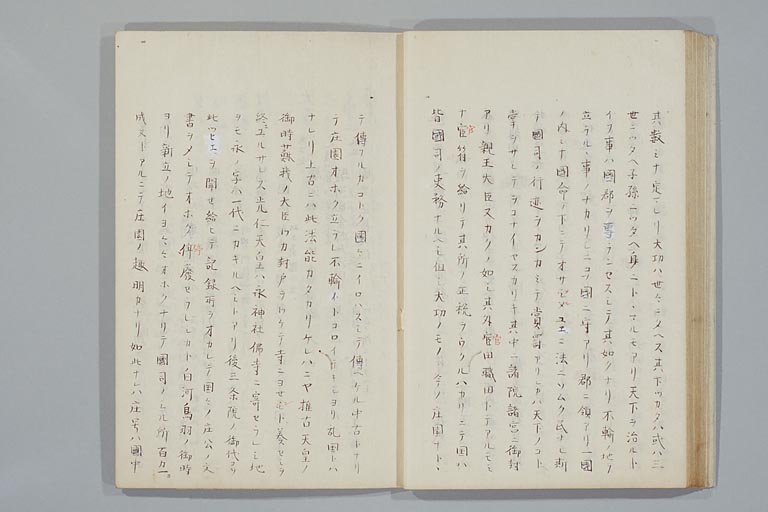 其数ミナ定レリ大功ハ世々ニタヘス其下ツカタハ或ハ三
世ニツタヘ子孫ニツタヘ身ニトヽマルモアリ天下ヲ治ルト
イフ事ハ國郡ヲ專ニセスシテ其如クナリ不輸ノ地ノ
立テル事ノナカリシニコソ國ニ守アリ郡ニ領アリ一國
ノ内ミナ國命ノ下ニテオサメシユエニ法ニソムク民ナシ斯
テ國司ノ行迹ヲカンカミテ賞罰アリシカハ天下ノコト
掌ヲサシテヲコナイヤスカリキ其中ニ諸院諸宮ニ御封
アリ親王大臣又カクノ如シ其外官田職田トテアルモミ
ナ官符ヲ給リテ其所ノ正税ヲウクルハカリニテ國ハ
皆國司ノ吏務ナルヘシ但シ大功ノモノソ今ノ庄園ナト、
テ傳フルカコトク國々ニイロハスシテ傳ヘケル中古トナリ
テ庄園オホク立ラレ不輸トコロイテキシヨリ乱国トハ
ナレリ上古ニハ此法能カタカリケレハニヤ推古天皇ノ
御時蘇我ノ大臣ワカ封戸ヲワケテ寺ニヨセムト奏セシヲ
終ニユルサレス光仁天皇ハ永神社佛寺ニ寄セラレシ地
ヲモ永ノ字ハ一代ニカキルヘシトアリ後三条院ノ御代コソ
此ツヒエヲ聞セ給ヒテ記録所ヲオカレテ國々ノ庄公ノ文
書ヲメシテオホク停廢セラレシカト白河鳥羽ノ御時
ヨリ新立ノ地イヨ〳〵オホクナリテ國司ノシル所百カ一ニ
成ヌトアルニテ庄園ノ趣明カナリ如此ナレハ庄号ハ國中